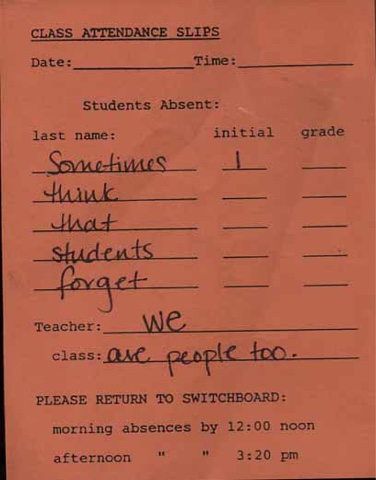 CLASS ATTENDANCE SLIPS
Date: Time:
Students Absent:
last name: initial grade
Sometimes I
think
that
students
forget
Teacher: we
class: are people too.
PLEASE RETURN TO SWITCHBOARD:
morning absences by 12:00 noon
afternoon " " 3:20 pm